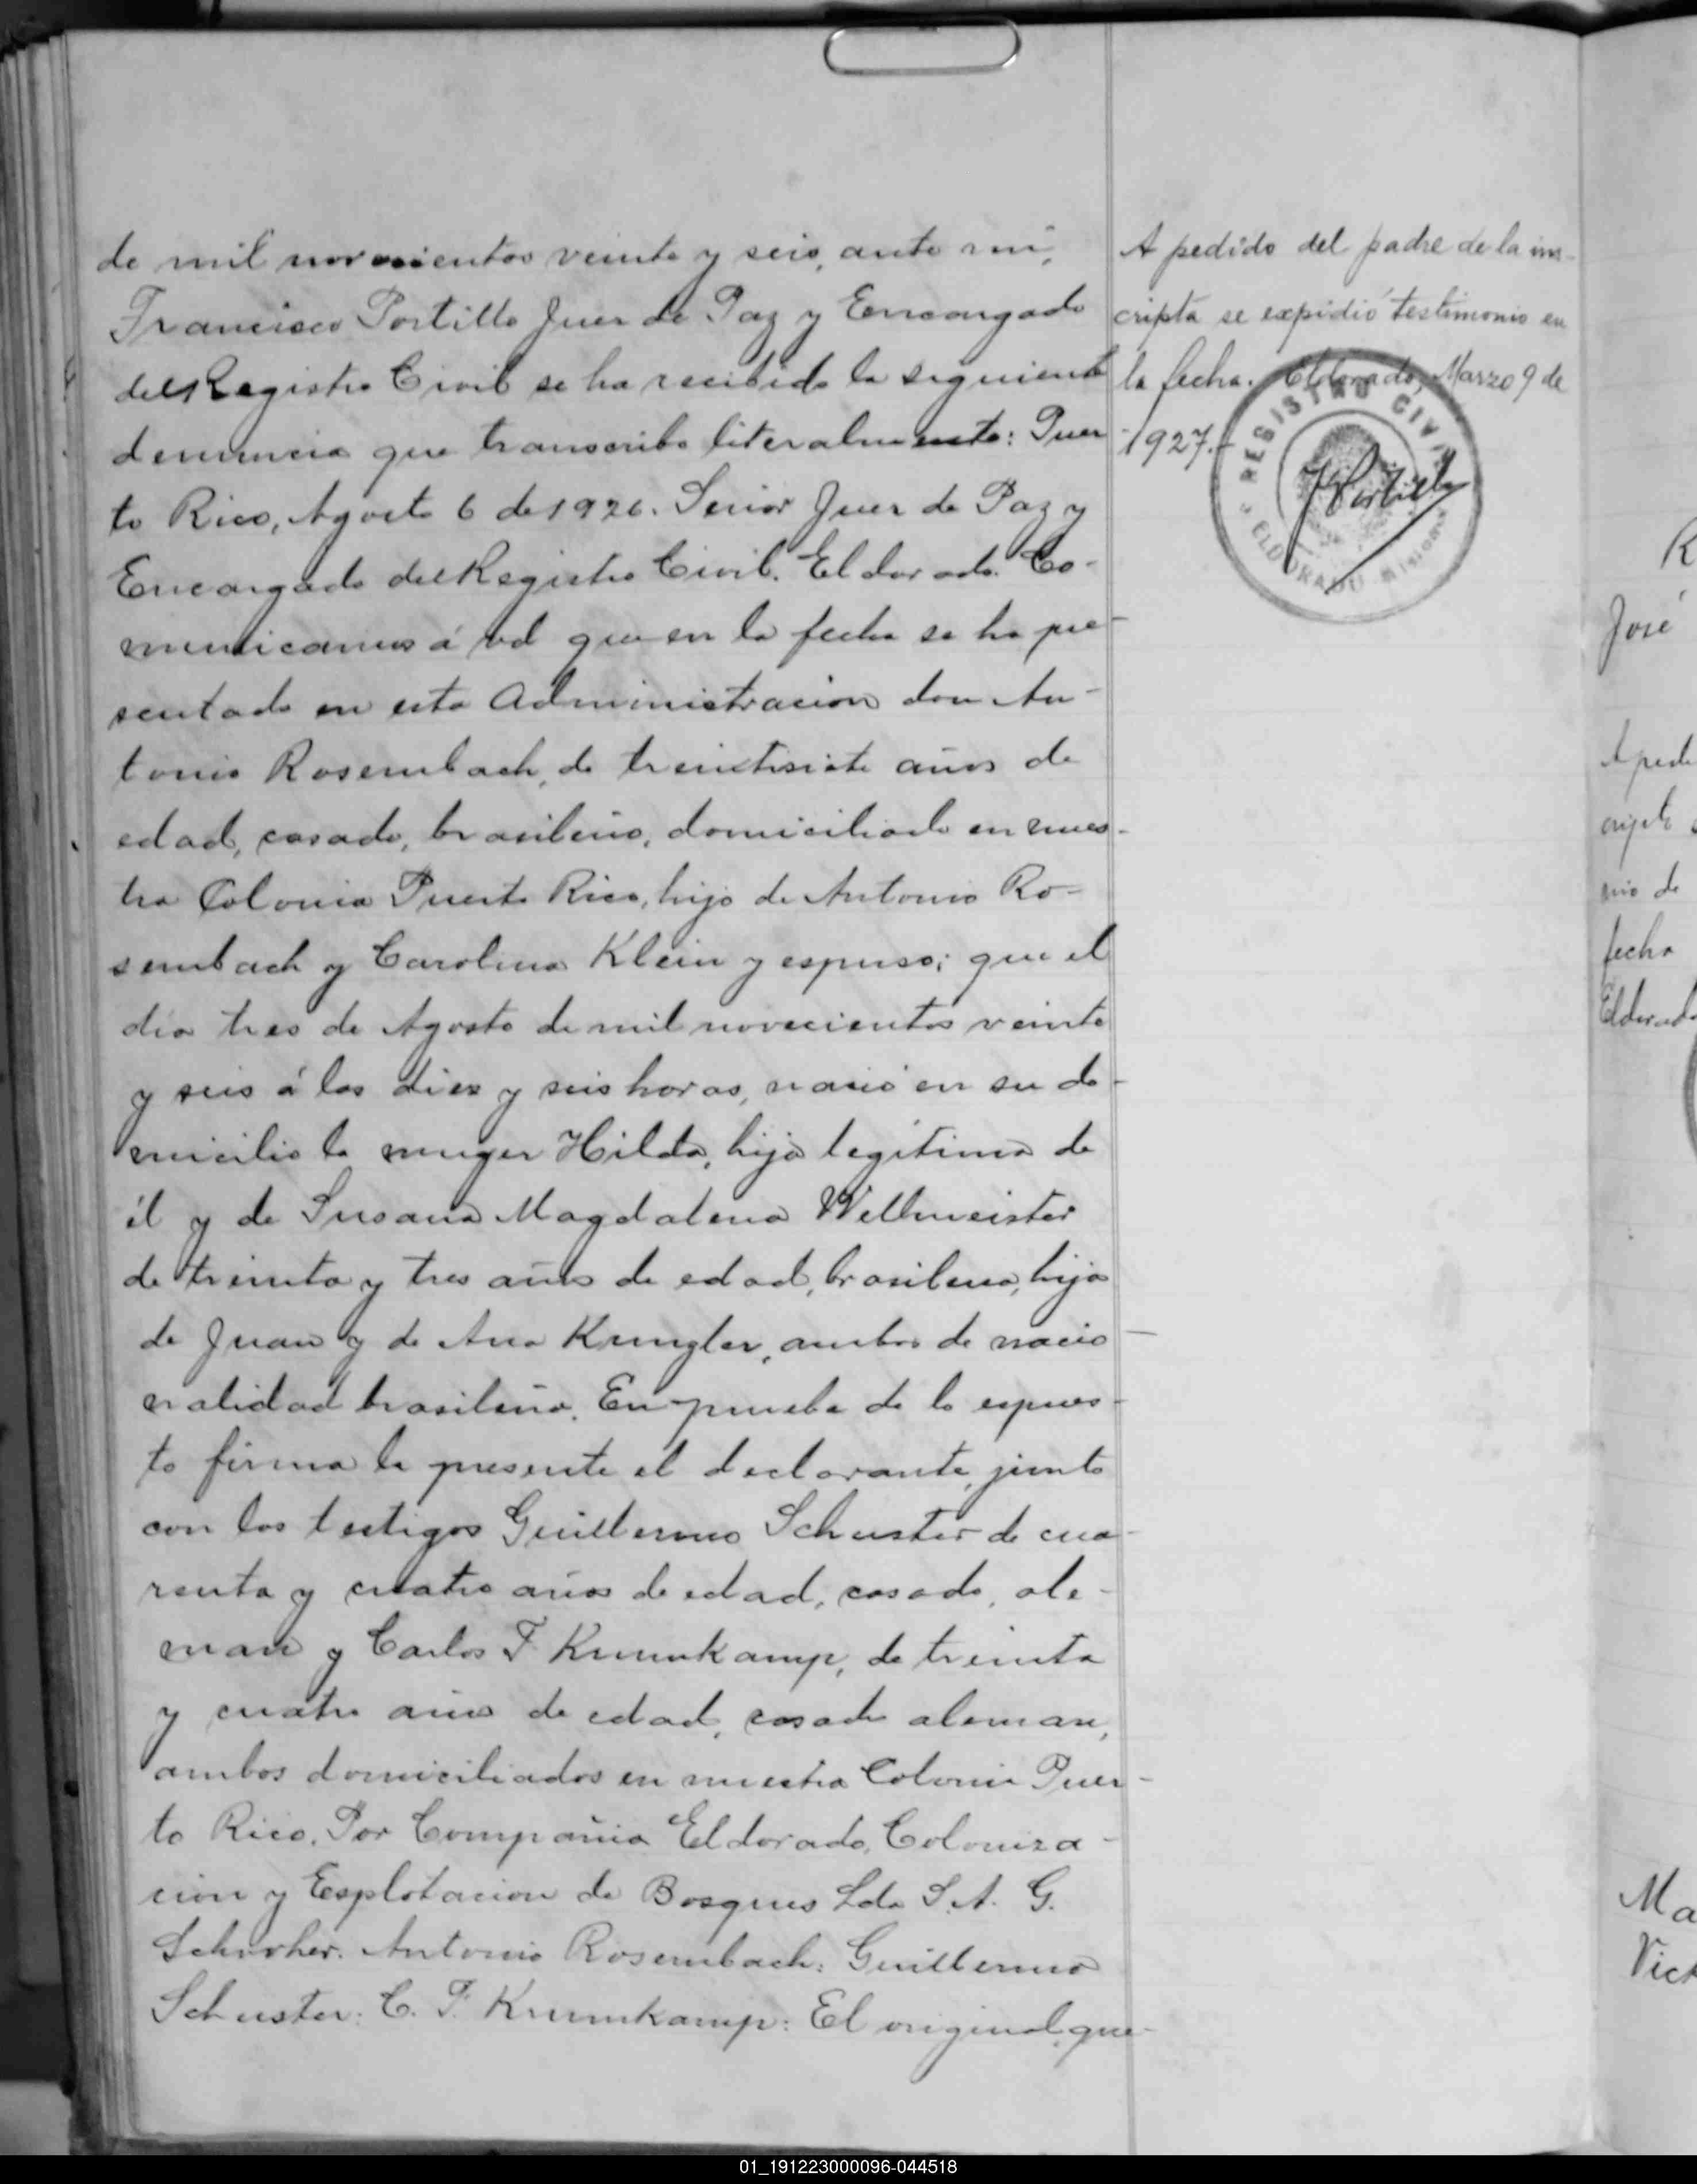 de mil novecientos veinte y seis, ante mi,
Francisco Portillo Juez de Paz y Encargado
del Registro Civil se ha recibido la siguiente
denuncia que transcribo literalmente: Puer
to Rico, Agosto 6 de 1926. Señor Juez de Paz y
Encargado del Registro Civil. Eldorado. Co-
municamos á vd que en la fecha se ha pre-
sentado en esta Administracion don An-
tonio Rosembach, de treintisiete años de
edad, casado, brasileño, domiciliado en nues-
tra Colonia Puerto Rico, hijo de Antonio Ro-
sembach y Carolina Klein y espuso: que el
día tres de Agosto de mil novecientos veinte
y seis á las diez y seis horas, nació en su do-
micilio la muger Hilda, hija legítima de
él y de Susana Magdalena Wellmeister
de treinta y tres años de edad, brasilena, hija
de Juan y de Ana Kungler, ambos de nacio-
nalidad brasileña. En prueba de lo espues-
to firma la presente el declarante, junto
con los testigos Guillermo Schuster de cua-
renta y cuatro años de edad, casado, ale-
man y Carlos F Krumkamp, de treinta
y cuatro años de edad, casado aleman,
ambos domiciliados en nuestra Colonia Puer-
to Rico. Por Compañia Eldorado, Coloniza-
cion y Esplotacion de Bosques Lda S. A. G.
Antonio Rosembach: Guillermo
Schuster: C. F. Krumkamp: El original que
A pedido del padre de la ins-
cripta se expidió testimonio en
la fecha. Eldorado, Marzo 9 de
1927.-
REGISTRO CIVIL
ELDORADO Misiones
F Portillo
José
fecha
Eldorado
01_191223000096-044518